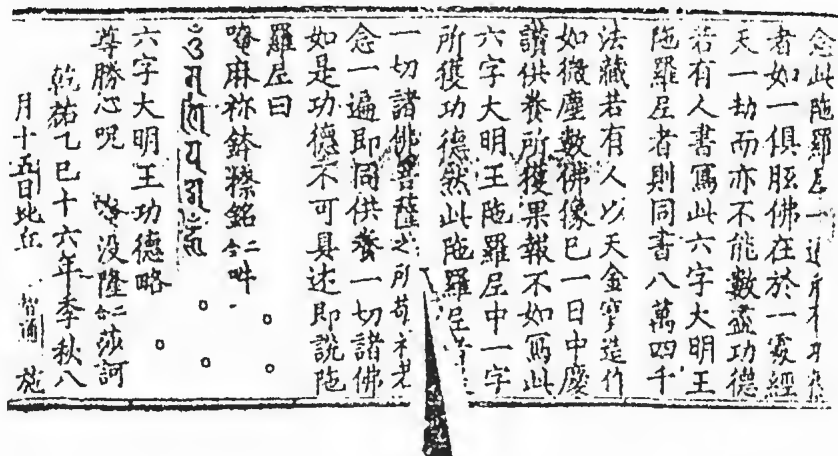 念此陀羅尼一遍所
者如一俱胝佛在於一處經
天一劫而亦不能數盡功德
若有人書寫此六字大明王
陁羅尼者則同書八萬四千
法藏若有人以天金寶造作
如微塵數佛像已一日中慶
讚供養所獲果報不如寫此
六字大明王陁羅尼中一字
所獲功德然此陁羅尼
一切諸佛菩薩之所
念一遍即同供養一切諸佛
如是功德不可具述即說陁
羅尼曰
唵麻祢鉢㘕銘二合吽
ॐ म णि प द्मे हूँ
六字大明王功德略
尊勝心呪 唵没隆二合莎訶
乾祐乙巳十六年季秋八
月十五日比丘 智通 施